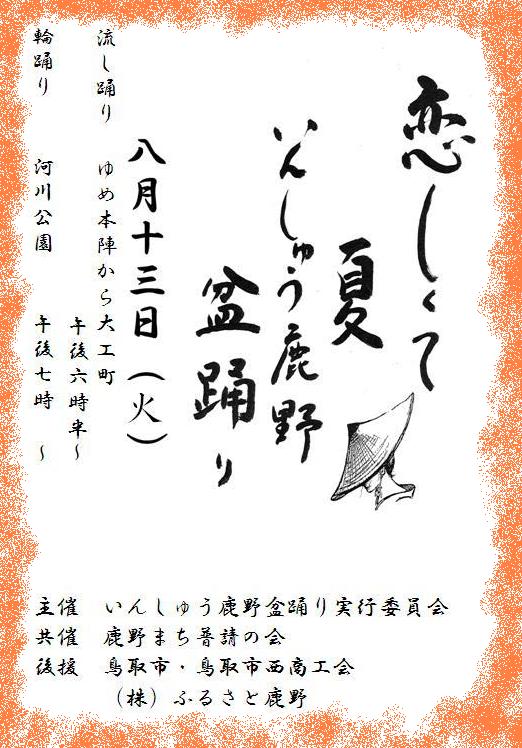 恋しくて
夏
いんしゅう鹿野
盆踊り
八月十三日（火）
流し踊り　ゆめ本陣から大工町
午後六時半～
輪踊り　河川公園　午後七時　～
主催　いんしゅう鹿野盆踊り実行委員会
共催　鹿野まち普請の会
後援　鳥取市・鳥取市西商工会
（株）ふるさと鹿野